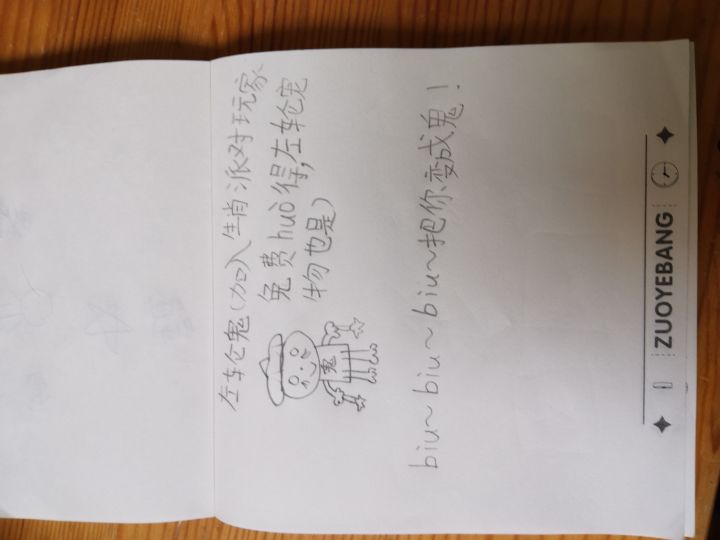 左轮鬼(加入生肖派对玩家
免费huò得,左轮宠
物也是)
鬼
biu~biu~biu~把你变成鬼!
ZUOYEBANG